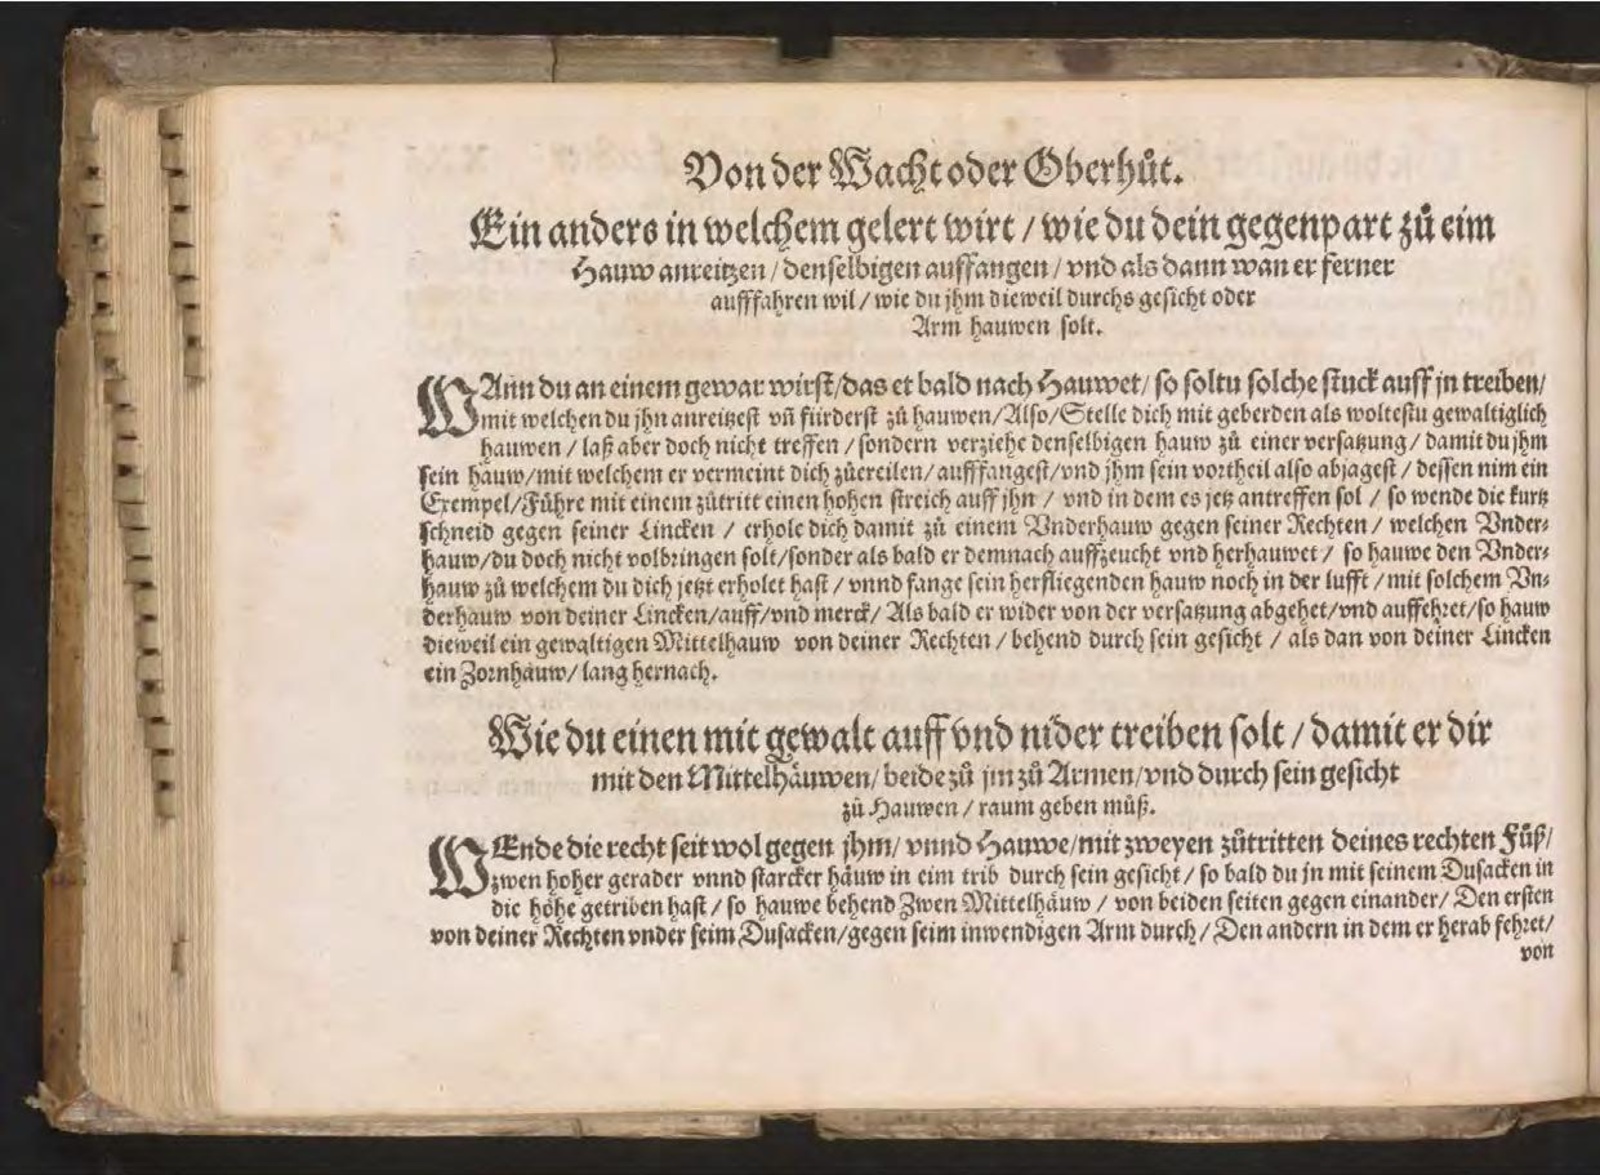 Von der Wacht oder Oberhůt.
Ein anders in welchem gelert wirt / wie du dein gegenpart zů eim
Hauw anreitzen / denselbigen auffangen / vnd als dann wan er ferner
aufffahren wil / wie du jhm dieweil durchs gesicht oder
Arm hauwen solt.
WAnn du an einem gewar wirst/das et bald nach Hauwet/ so soltu solche stuck auff jn treiben/
mit welchen du jhn anreitzest vñ fürderst zů hauwen/Also/Stelle dich mit geberden als woltestu gewaltiglich
hauwen / laß aber doch nicht treffen / sondern verziehe denselbigen hauw zů einer versatzung / damit du jhm
sein häuw/mit welchem er vermeint dich zůereilen/ aufffangest/vnd jhm sein vortheil also abjagest / dessen nim ein
Exempel/Führe mit einem zůtritt einen hohen streich auff jhn / vnd in dem es jetz antreffen sol / so wende die kurtz
schneid gegen seiner Lincken / erhole dich damit zů einem Vnderhauw gegen seiner Rechten / welchen Vnder-
hauw/du doch nicht volbringen solt/sonder als bald er demnach auffzeucht vnd herhauwet / so hauwe den Vnder-
hauw zů welchem du dich jetzt erholet hast / vnnd fange sein herfliegenden hauw noch in der lufft / mit solchem Vn-
derhauw von deiner Lincken/auff/vnd merck/ Als bald er wider von der versatzung abgehet/vnd auffehret/so hauw
dieweil ein gewaltigen Mittelhauw von deiner Rechten / behend durch sein gesicht / als dan von deiner Lincken
ein Zornhäuw/ lang hernach.
Wie du einen mit gewalt auff vnd nider treiben solt / damit er dir
mit den Mittelhäuwen/ beide zů jm zů Armen/vnd durch sein gesicht
zů Hauwen / raum geben můß.
WEnde die recht seit wol gegen jhm/ vnnd Hauwe/mit zweyen zůtritten deines rechten Fůß/
zwen hoher gerader vnnd starcker häuw in eim trib durch sein gesicht / so bald du jn mit seinem Dusacken in
die höhe getriben hast / so hauwe behend Zwen Mittelhäuw / von beiden seiten gegen einander/ Den ersten
von deiner Rechten vnder seim Dusacken/gegen seim inwendigen Arm durch / Den andern in dem er herab fehret/
von